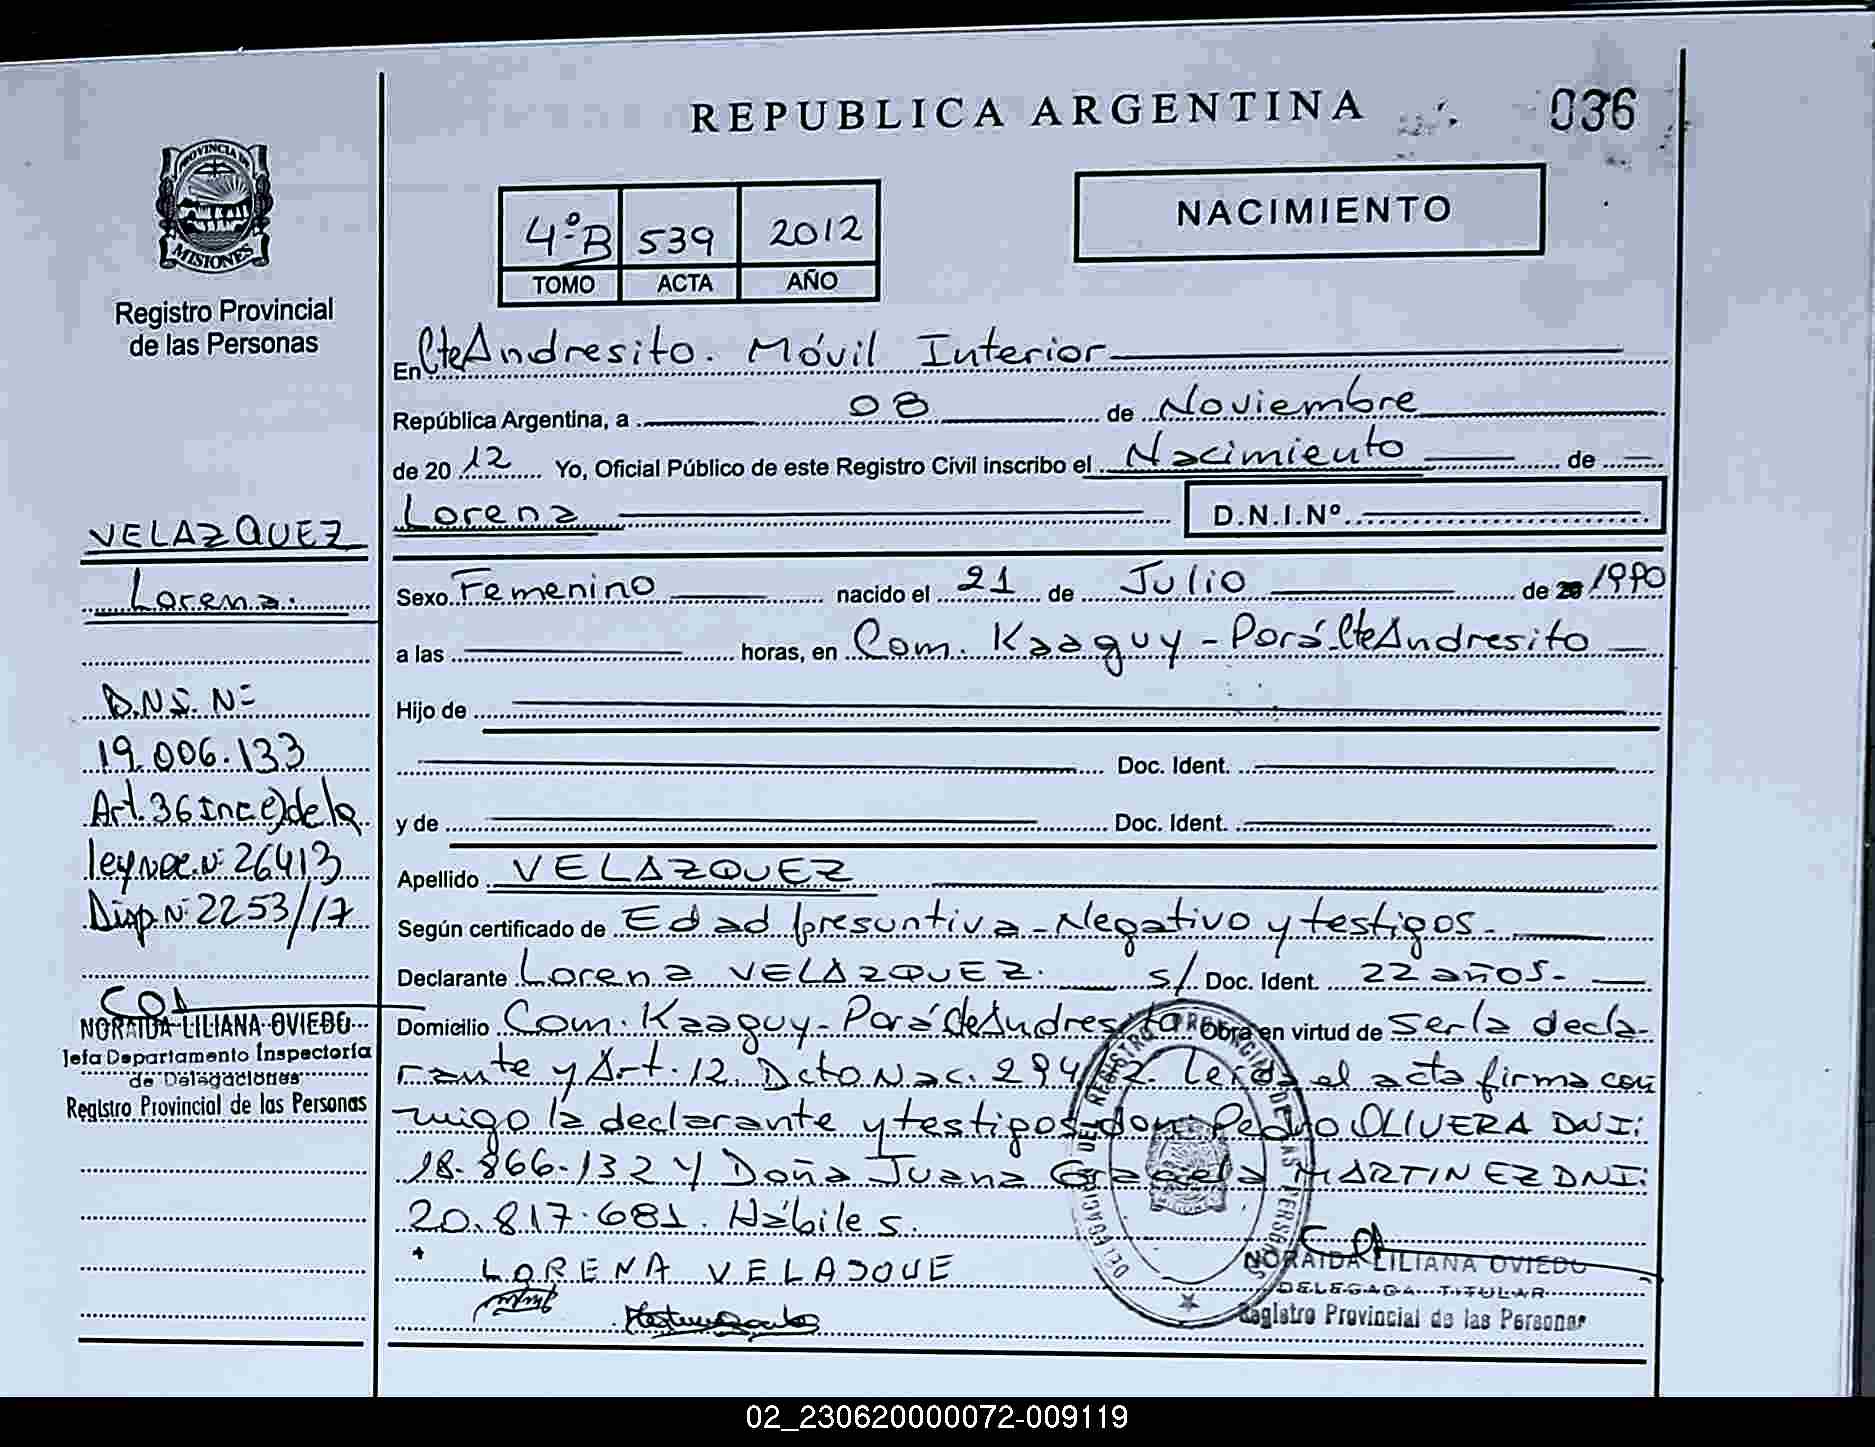 REPUBLICA ARGENTINA
036
PROVINCIA DE
MISIONES
Registro Provincial
de las Personas
4º B 539 2012
TOMO ACTA AÑO
NACIMIENTO
En Cte Andresito. Móvil Interior
República Argentina, a 08 de Noviembre
de 20 12 Yo, Oficial Público de este Registro Civil inscribo el Nacimiento de
Lorena D.N.I.Nº
Sexo Femenino nacido el 21 de Julio de 1990
a las horas, en Com. Kaaguy - Porá - Cte Andresito
Hijo de
Doc. Ident.
y de Doc. Ident.
Apellido VELAZQUEZ
Según certificado de Edad presuntiva - Negativo y testigos -
Declarante Lorena VELAZQUEZ. s/ Doc. Ident. 22 años-
Domicilio Com. Kaaguy - Porá Cte Andresito Obra en virtud de ser la decla-
rante y Art. 12 Dcto Nac. Leída el acta firma con
migo la declarante y testigos don Pedro OLIVERA DNI:
18.866.132 y Doña Juana Graciela MARTINEZ DNI:
20.817.681. Hábiles.
LORENA VELASQUE
NORAIDA LILIANA OVIEDO
DELEGADA TITULAR
Registro Provincial de las Personas
DELEGACION DEL REGISTRO PROVINCIAL DE LAS PERSONAS
VELAZQUEZ
Lorena.
D.N.I. Nº
19.006.133
Art. 36 Inc e) de la
ley nac. Nº 26413
Disp. Nº 2253/17
NORAIDA LILIANA OVIEDO
Jefa Departamento Inspectoría
de Delegaciones
Registro Provincial de las Personas
02_230620000072-009119